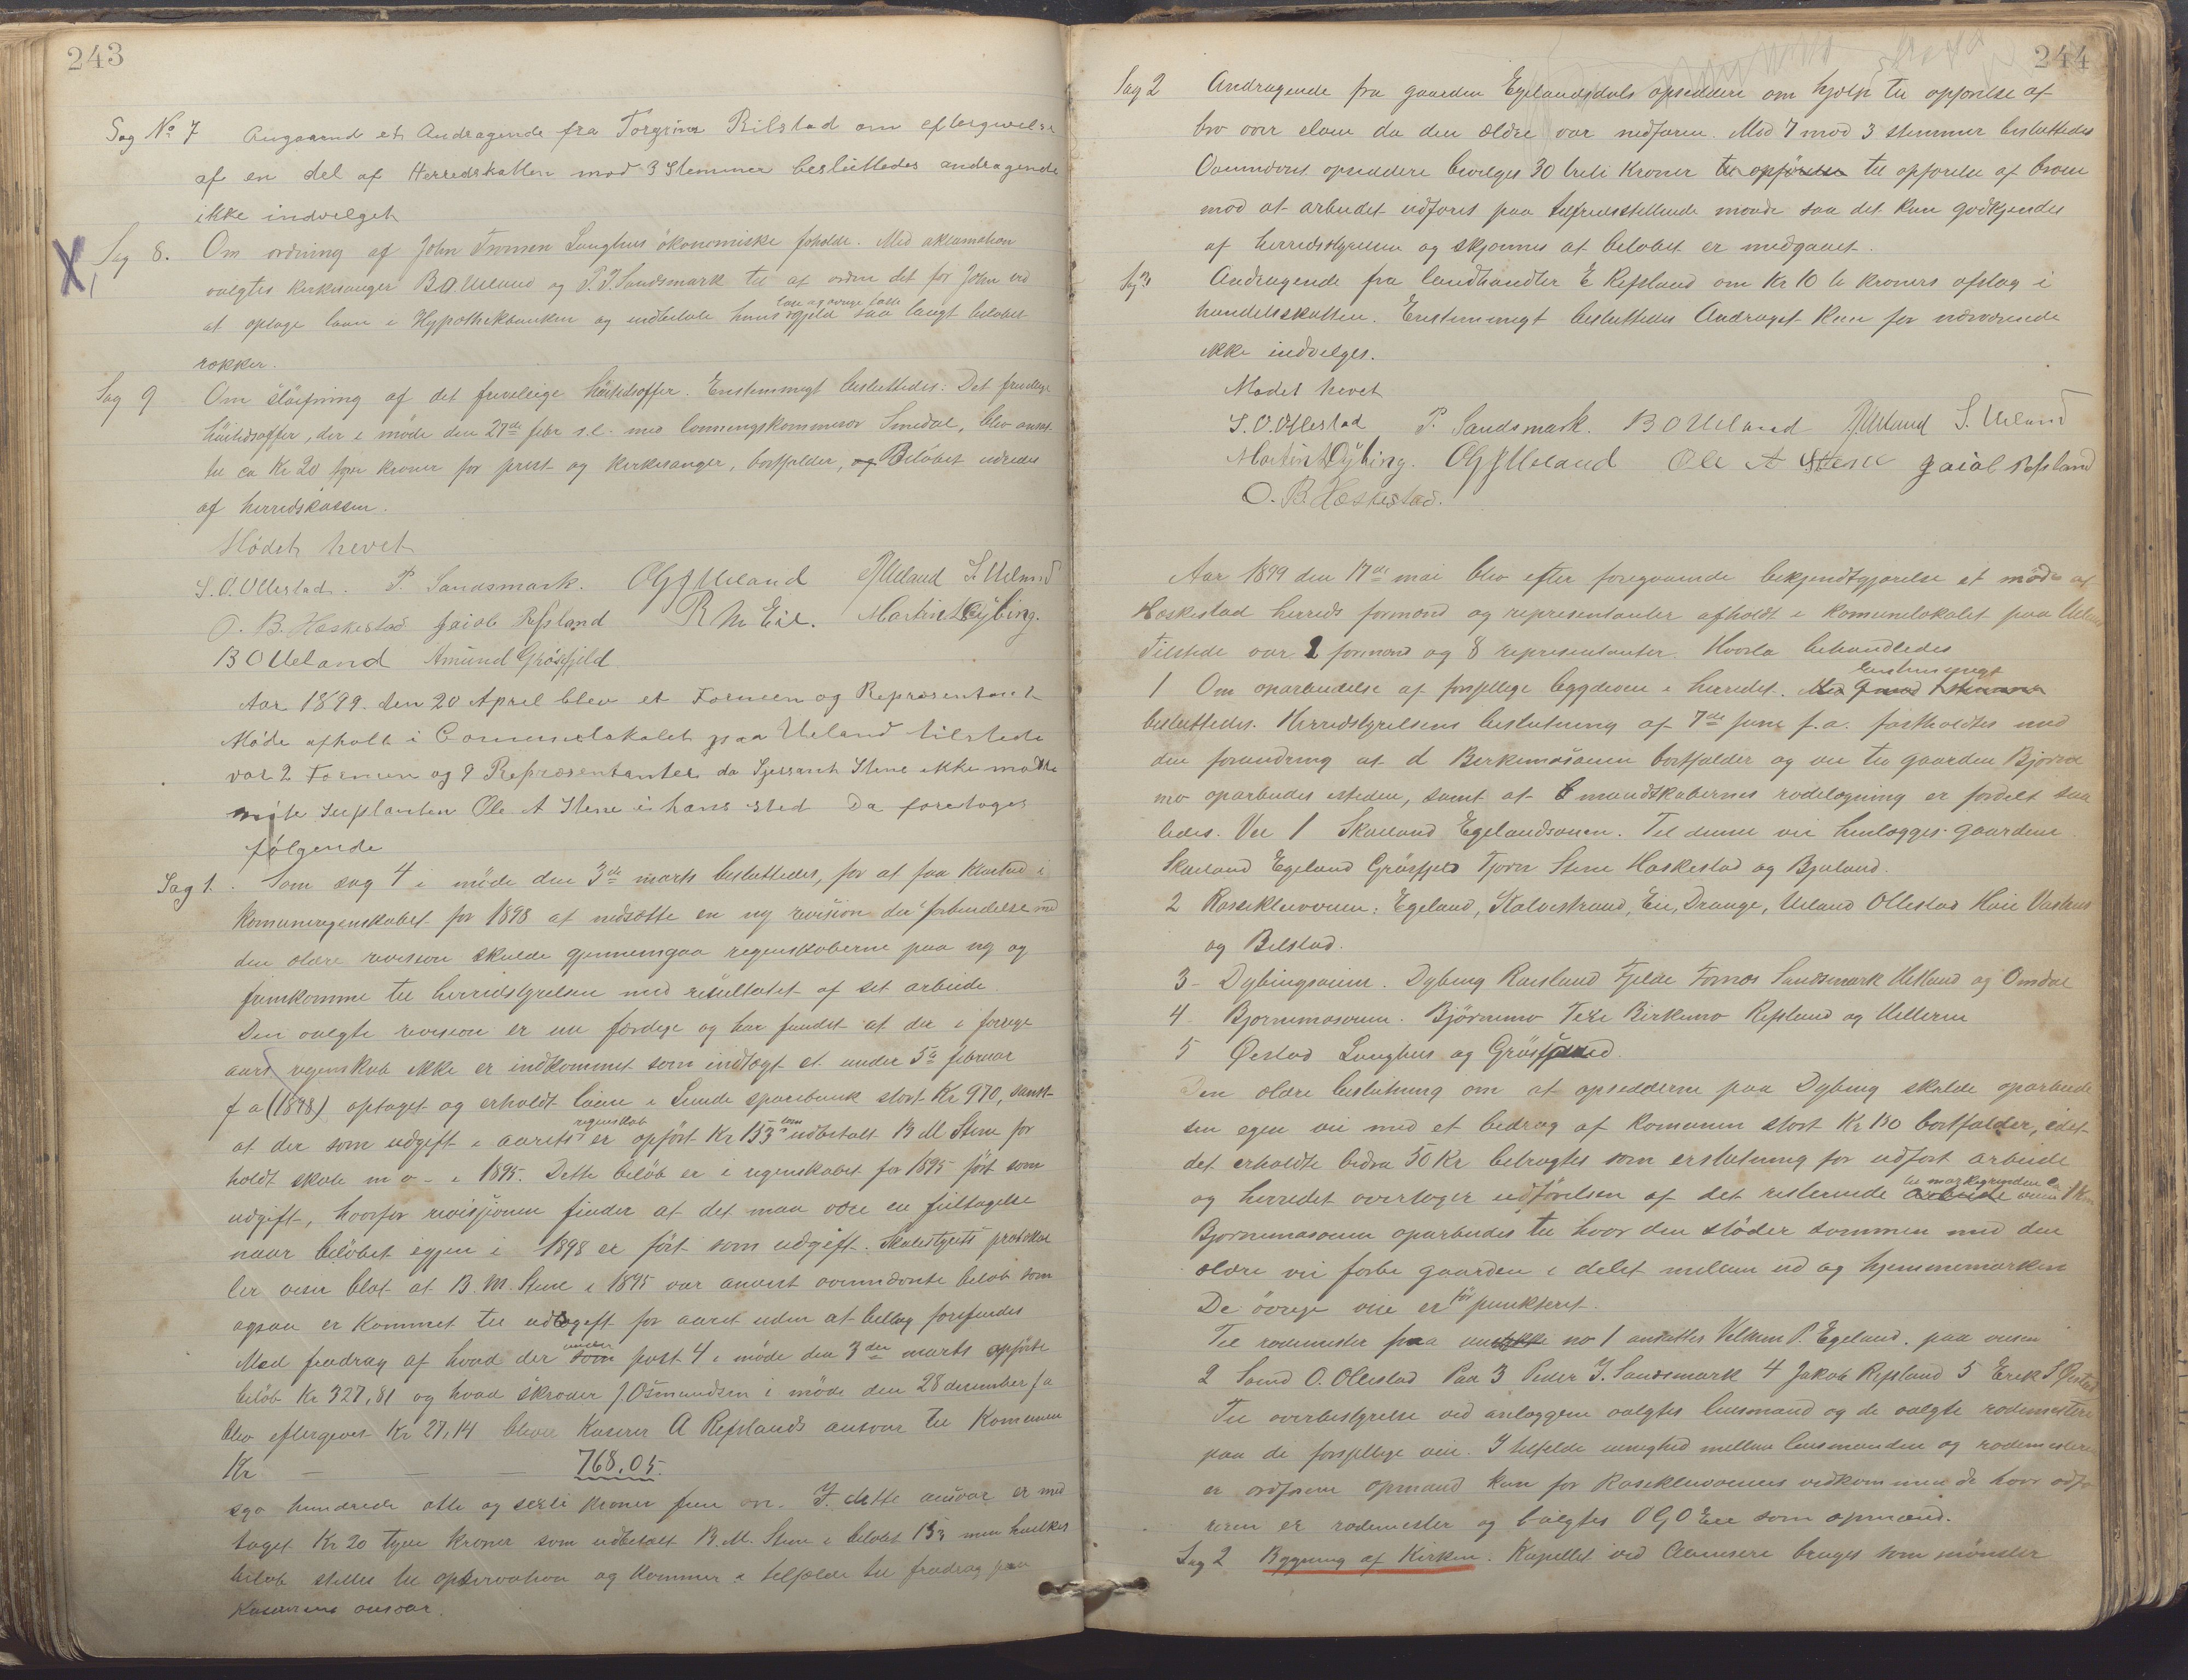 243
Sag No 7 Angaaend et Andragende fra Torgrim Bilstad om eftergivelse
af en del af Herredskatten mod 3 Stemmer besluttedes andragende
ikke indvelget
X, Sag 8. Om ordning af John Tronsen Launghus økonomiske foholde. Med aklamation
valgtes kirkesanger B O Ueland og P. J. Sandsmark til at ordne det for John ved
at optage laan i Hypothekbanken og indbetale hans løse og øvrige faste gjeld saa langt beløbet
rækker.
Sag 9 Om sløifning af det frivillige Høitidsoffer. Enstemmigt besluttedes: Det frivillige
høitidsoffer, der i møde den 27de febr s.l. med lønningskommisør Smedal, blev anset
til ca Kr 20 tyve kroner for prest og kirkesanger, bortfalder, og Beløbet udredes
af herredskassen.
Mødet hevet
S. O. Ollestad. P. Sandsmark. OGJUeland PJUeland S. Ueland
O. B. Hæskestad Jacob Refsland R M Eie. Martin Dybing.
B O Ueland Amund Grøsfjeld
Aar 1899 den 20 April blev et Formen og Representant
Møde afholt i Communelokalet paa Ueland tilstede
var 2 Formen og 9 Representanter da Sjersant Stene ikke mødte
møte Suplanten Ole A Stene i hans sted Da foretoges
følgende
Sag 1. Som sag 4 i møde den 3de marts besluttedes, for at faa klarhed i
Komuneregenskabet for 1898 at nedsætte en ny revision der i forbindelse med
den eldre revision skulde gjennemgaa regenskaberne paa ny og
fremkomme til herredstyrelsen med resultatet af sit arbeide.
Den valgte revision er nu færdige og har fundet at der i forrige
aars regenskab ikke er indkommet som indtægt et under 5te februar
f a (1898) optaget og erholdt laan i Lunde sparebank stort Kr 970, samt
at der som udgift i aarets regenskab er opført Kr 153 som udbetalt B M Stene for
holdt skole m v - i 1895. Dette beløb er i regenskabet for 1895 ført som
udgift, hvorfor revisjonen finder at det maa være en feiltagelse
naar beløbet igjen i 1898 er ført som udgift. Skolestyrets protokol
ler viser blot at B. M. Stene i 1895 var anvist ovennævnte beløb som
ogsaa er kommet til udgift for aaret uden at bellag forefindes
Med fradrag af hvad der under som post 4 i møde den 3die marts opførte
beløb Kr 327,81 og hvad skræder J Osmundsen i møde den 28 december f a
blev eftergivet Kr 27,14 bliver Kaserer A Refslands ansvar til Komunen
Kr — — — 768.05.
syv hundrede otte og seksti kroner fem øre. I dette ansvar er med
taget Kr 20 tyve kroner som udbetalt B. M. Stene i beløbet 153 men hvilket
beløb stilles til opservation og kommer i tilfælde til fradrag paa
Kasererens ansvar.
244
Sag 2 Andragende fra gaarden Egelandsdals opsiddere om hjælp til opførelse af
bro over elven da den ældre var nedfaren. Mod 7 mod 3 stemmer besluttedes
Ovennevnt opsiddere bevilges 30 treti Kroner til opførelse til opførelse af broen
mod at arbeidet udføres paa tilfredsstillende maade saa det kan godkjendes
af herredsstyrelsen og skjønnes at beløbet er medgaaet.
Sag 3 Andragende fra landhandler E Refsland om Kr 10 ti kroners afslag i
handelsskatten. Enstemmigt besluttedes Andraget kan for nærværende
ikke indvelges.
Mødet hevet
S. O. Ollestad P. Sandsmark. B O Ueland PJUeland S. Ueland
Martin Dybing. OGJUeland Ole A Stene Jacob Refsland
O. B. Hæskestad.
Aar 1899 den 17de mai blev efter foregaaende bekjendtgjørelse et møde af
Heskestad herreds formænd og representanter afholdt i komunelokalet paa Ueland
Tilstede var 2 formænd og 8 representanter. Hvorda behandledes
1 Om oparbeidelse af forskjellige bygdeveie i herredet. Med 9 mod 1 stemme Enstemmigt
besluttedes. Herredstyrelsens beslutning af 7de juni f.a. fastholdtes med
den forandring at d Berkemoveien bortfalder og vei til gaarden Bjørne
mo oparbeides isteden, samt at mandskabernes rodelægning er fordelt saa
ledes. Vei 1 Skaaland Egelandsveien. Til denne vei henlægges gaardene
Skaaland Egeland Grøsfjeld Tjørn Stene Hæskestad og Bjuland.
2 Rosseklevveien: Egeland, Kalvestrand, Eie, Drange, Ueland Ollestad Høie Vashus
og Bilstad.
3 - Dybingveien. Dybing Røisland Fjelde Fornes Sandsmark Uetland og Omdal
4 - Bjørnemoveien. Bjørnmo Teze Birkemo Refsland og Helleren
5 Østad Launghus og Grøsfjeld.
Den eldre beslutning om at opsidderne paa Dybing skulde oparbeide
sin egen vei med et bedrag af komunen stort Kr 150 bortfalder, idet
det erholdte bidra 50 Kr betragtes som erstatning for udført arbeide
og herredet overtager udførelsen af det resterende arbeide til markegrinden ca 1 km
Bjørnemoveien oparbeides til hvor den støder sammen med den
eldre vei forbi gaarden i delet mellem ud og hjemmemarken
De øvrige veie er før punkteret.
Til rodemester paa no 1 ansættes Villum P. Egeland. paa veien
2 Søend O. Ollestad Paa 3 Peder J. Sandsmark 4 Jakob Refsland 5 Erek S Østad
Til overbestyrelse ved anlæggene valgtes lensmand og de valgte rodemestere
paa de forskjellige veie. I tilfelde uenighed mellem lensmanden og rodemestere
er ordføren opmand kun for Roseklevveiens vedkommende hvor ordfø
reren er rodemester og valgtes O G O Eie som opmand.
Sag 2 Bygning af Kirken. Kapellet ved Aavensere bruges som mønster